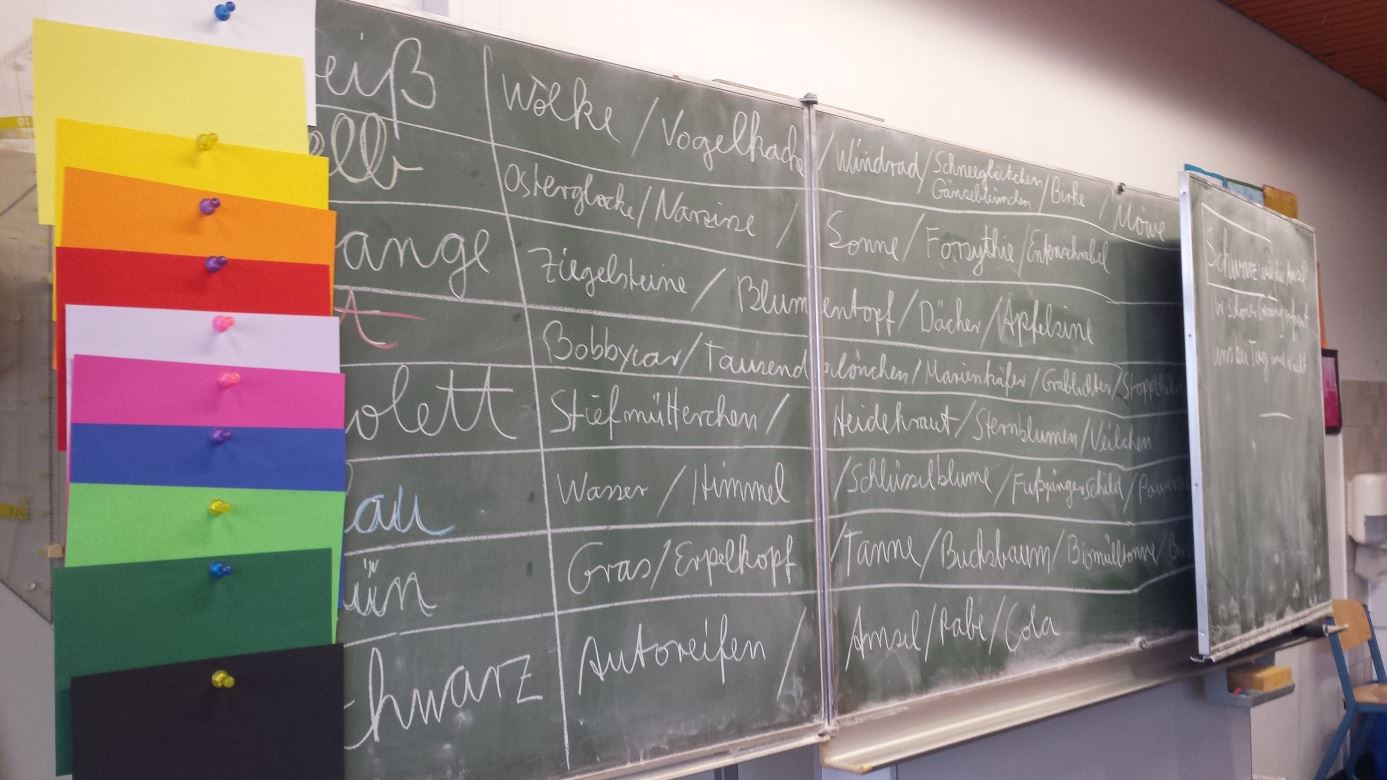 eiß Wolke / Vogelkacke / Windrad / Schneeglöckchen / Birke / Möwe
Gänseblümchen
elb Osterglocke / Narzisse / Sonne / Forsythie / Entenschnabel
ange Ziegelsteine / Blumentopf / Dächer / Apfelsine
t Bobbycar / Tausendschönchen / Marienkäfer / Grablichter /
olett Stiefmütterchen / Heidekraut / Sternblumen / Veilchen
lau Wasser / Himmel / Schlüsselblume / Fußgängerschild /
ün Gras / Erpelkopf / Tanne / Buchsbaum / Biomülltonne /
chwarz Autoreifen / Amsel / Rabe / Cola
Schwarz wie die
uns bei Tag und Nacht